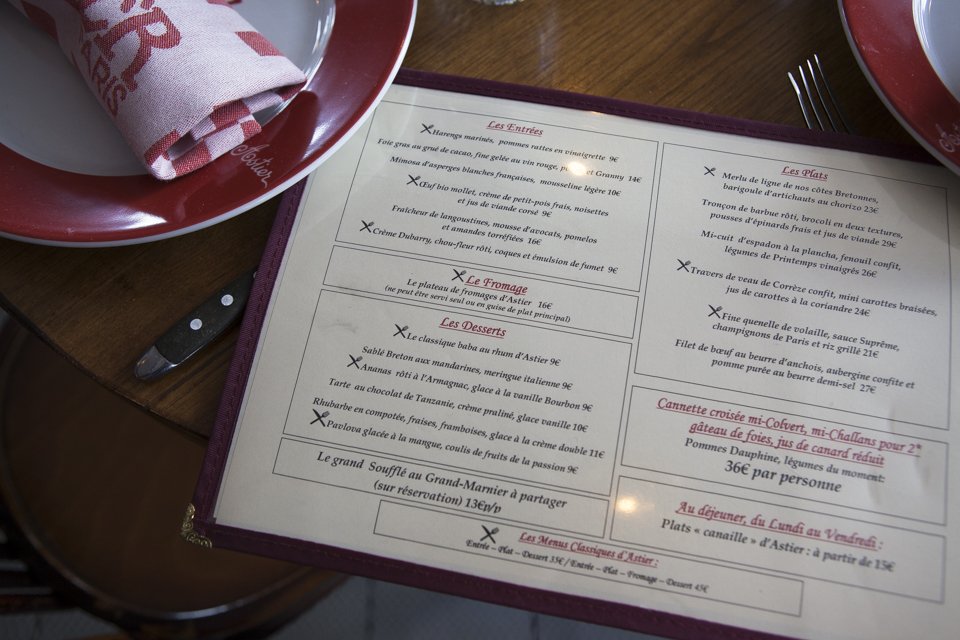 ER
PARIS
Astier
Astier
Les Entrées
Harengs marinés, pommes rattes en vinaigrette 9€
Foie gras au grué de cacao, fine gelée au vin rouge, et Granny 14€
Mimosa d'asperges blanches françaises, mousseline légère 10€
Œuf bio mollet, crème de petit-pois frais, noisettes
et jus de viande corsé 9€
Fraîcheur de langoustines, mousse d'avocats, pomelos
et amandes torréfiées 16€
Crème Dubarry, chou-fleur rôti, coques et émulsion de fumet 9€
Le Fromage
Le plateau de fromages d'Astier 16€
(ne peut être servi seul ou en guise de plat principal)
Les Desserts
Le classique baba au rhum d'Astier 9€
Sablé Breton aux mandarines, meringue italienne 9€
Ananas rôti à l'Armagnac, glace à la vanille Bourbon 9€
Tarte au chocolat de Tanzanie, crème praliné, glace vanille 10€
Rhubarbe en compotée, fraises, framboises, glace à la crème double 11€
Pavlova glacée à la mangue, coulis de fruits de la passion 9€
Le grand Soufflé au Grand-Marnier à partager
(sur réservation) 13€p/p
Les Menus Classiques d'Astier :
Entrée – Plat – Dessert 35€ / Entrée – Plat – Fromage – Dessert 45€
Les Plats
Merlu de ligne de nos côtes Bretonnes,
barigoule d'artichauts au chorizo 23€
Tronçon de barbue rôti, brocoli en deux textures,
pousses d'épinards frais et jus de viande 29€
Mi-cuit d'espadon à la plancha, fenouil confit,
légumes de Printemps vinaigrés 26€
Travers de veau de Corrèze confit, mini carottes braisées,
jus de carottes à la coriandre 24€
Fine quenelle de volaille, sauce Suprême,
champignons de Paris et riz grillé 21€
Filet de bœuf au beurre d'anchois, aubergine confite et
pomme purée au beurre demi-sel 27€
Cannette croisée mi-Colvert, mi-Challans pour 2*
gâteau de foies, jus de canard réduit
Pommes Dauphine, légumes du moment:
36€ par personne
Au déjeuner, du Lundi au Vendredi :
Plats « canaille » d'Astier : à partir de 15€